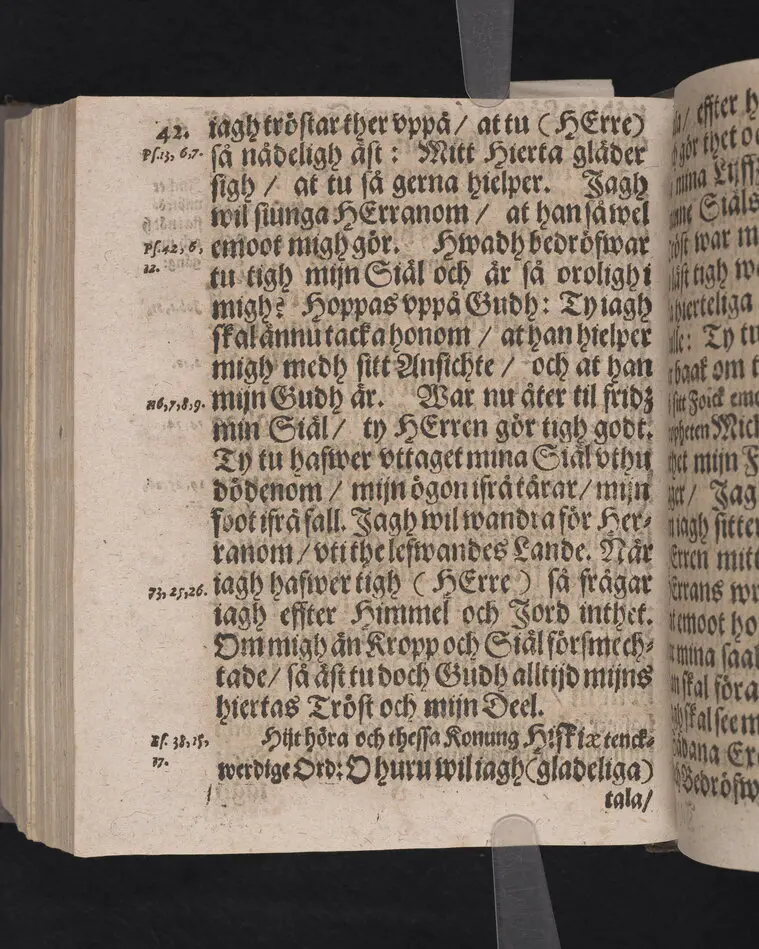 42. iagh tröstar ther vppå / at tu (HErre)
Ps.13, 6,7. så nådeligh äst : Mitt Hierta gläder
sigh / at tu så gerna hielper. Jagh
wil siunga HErranom / at han så wel
Ps.42, 6, emoot migh gör. Hwadh bedröfwar
12. tu tigh mijn Siäl och är så oroligh i
migh? Hoppas vppå Gudh: Ty iagh
skal ännu tacka honom / at han hielper
migh medh sitt Ansichte / och at han
116,7,8,9. mijn Gudh är. War nu åter til fridz
min Siäl / ty HErren gör tigh godt.
Ty tu hafwer vttaget mina Siäl vthu
dödenom / mijn ögon ifrå tårar / mijn
foot ifrå fall. Jagh wil wandra för Her-
ranom / vti the lefwandes Lande. När
73,25,26. iagh hafwer tigh (HErre) så frågar
iagh effter Himmel och Jord inthet.
Om migh än Kropp och Siäl försmech-
tade / så äst tu doch Gudh alltijd mijns
hiertas Tröst och mijn Deel.
Es. 38,15, Hijt höra och thessa Konung Hiskiæ tenck-
17. werdige Ord: O huru wil iagh (gladeliga)
tala/
effter
gör thet
mina
Siäls
war
tigh
hierteliga
Ty tu
baak om
sitt Folck
Mich
mijn
/ Jag
iagh sitter
mitt
emoot
mina
skal föra
skal see
Bedröfw